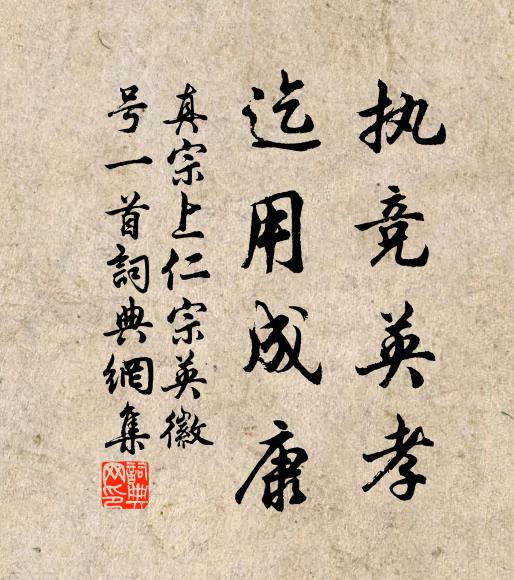 执竞英孝
迄用成康
真宗上仁宗英徽
号一首詞典網集
詞典網印